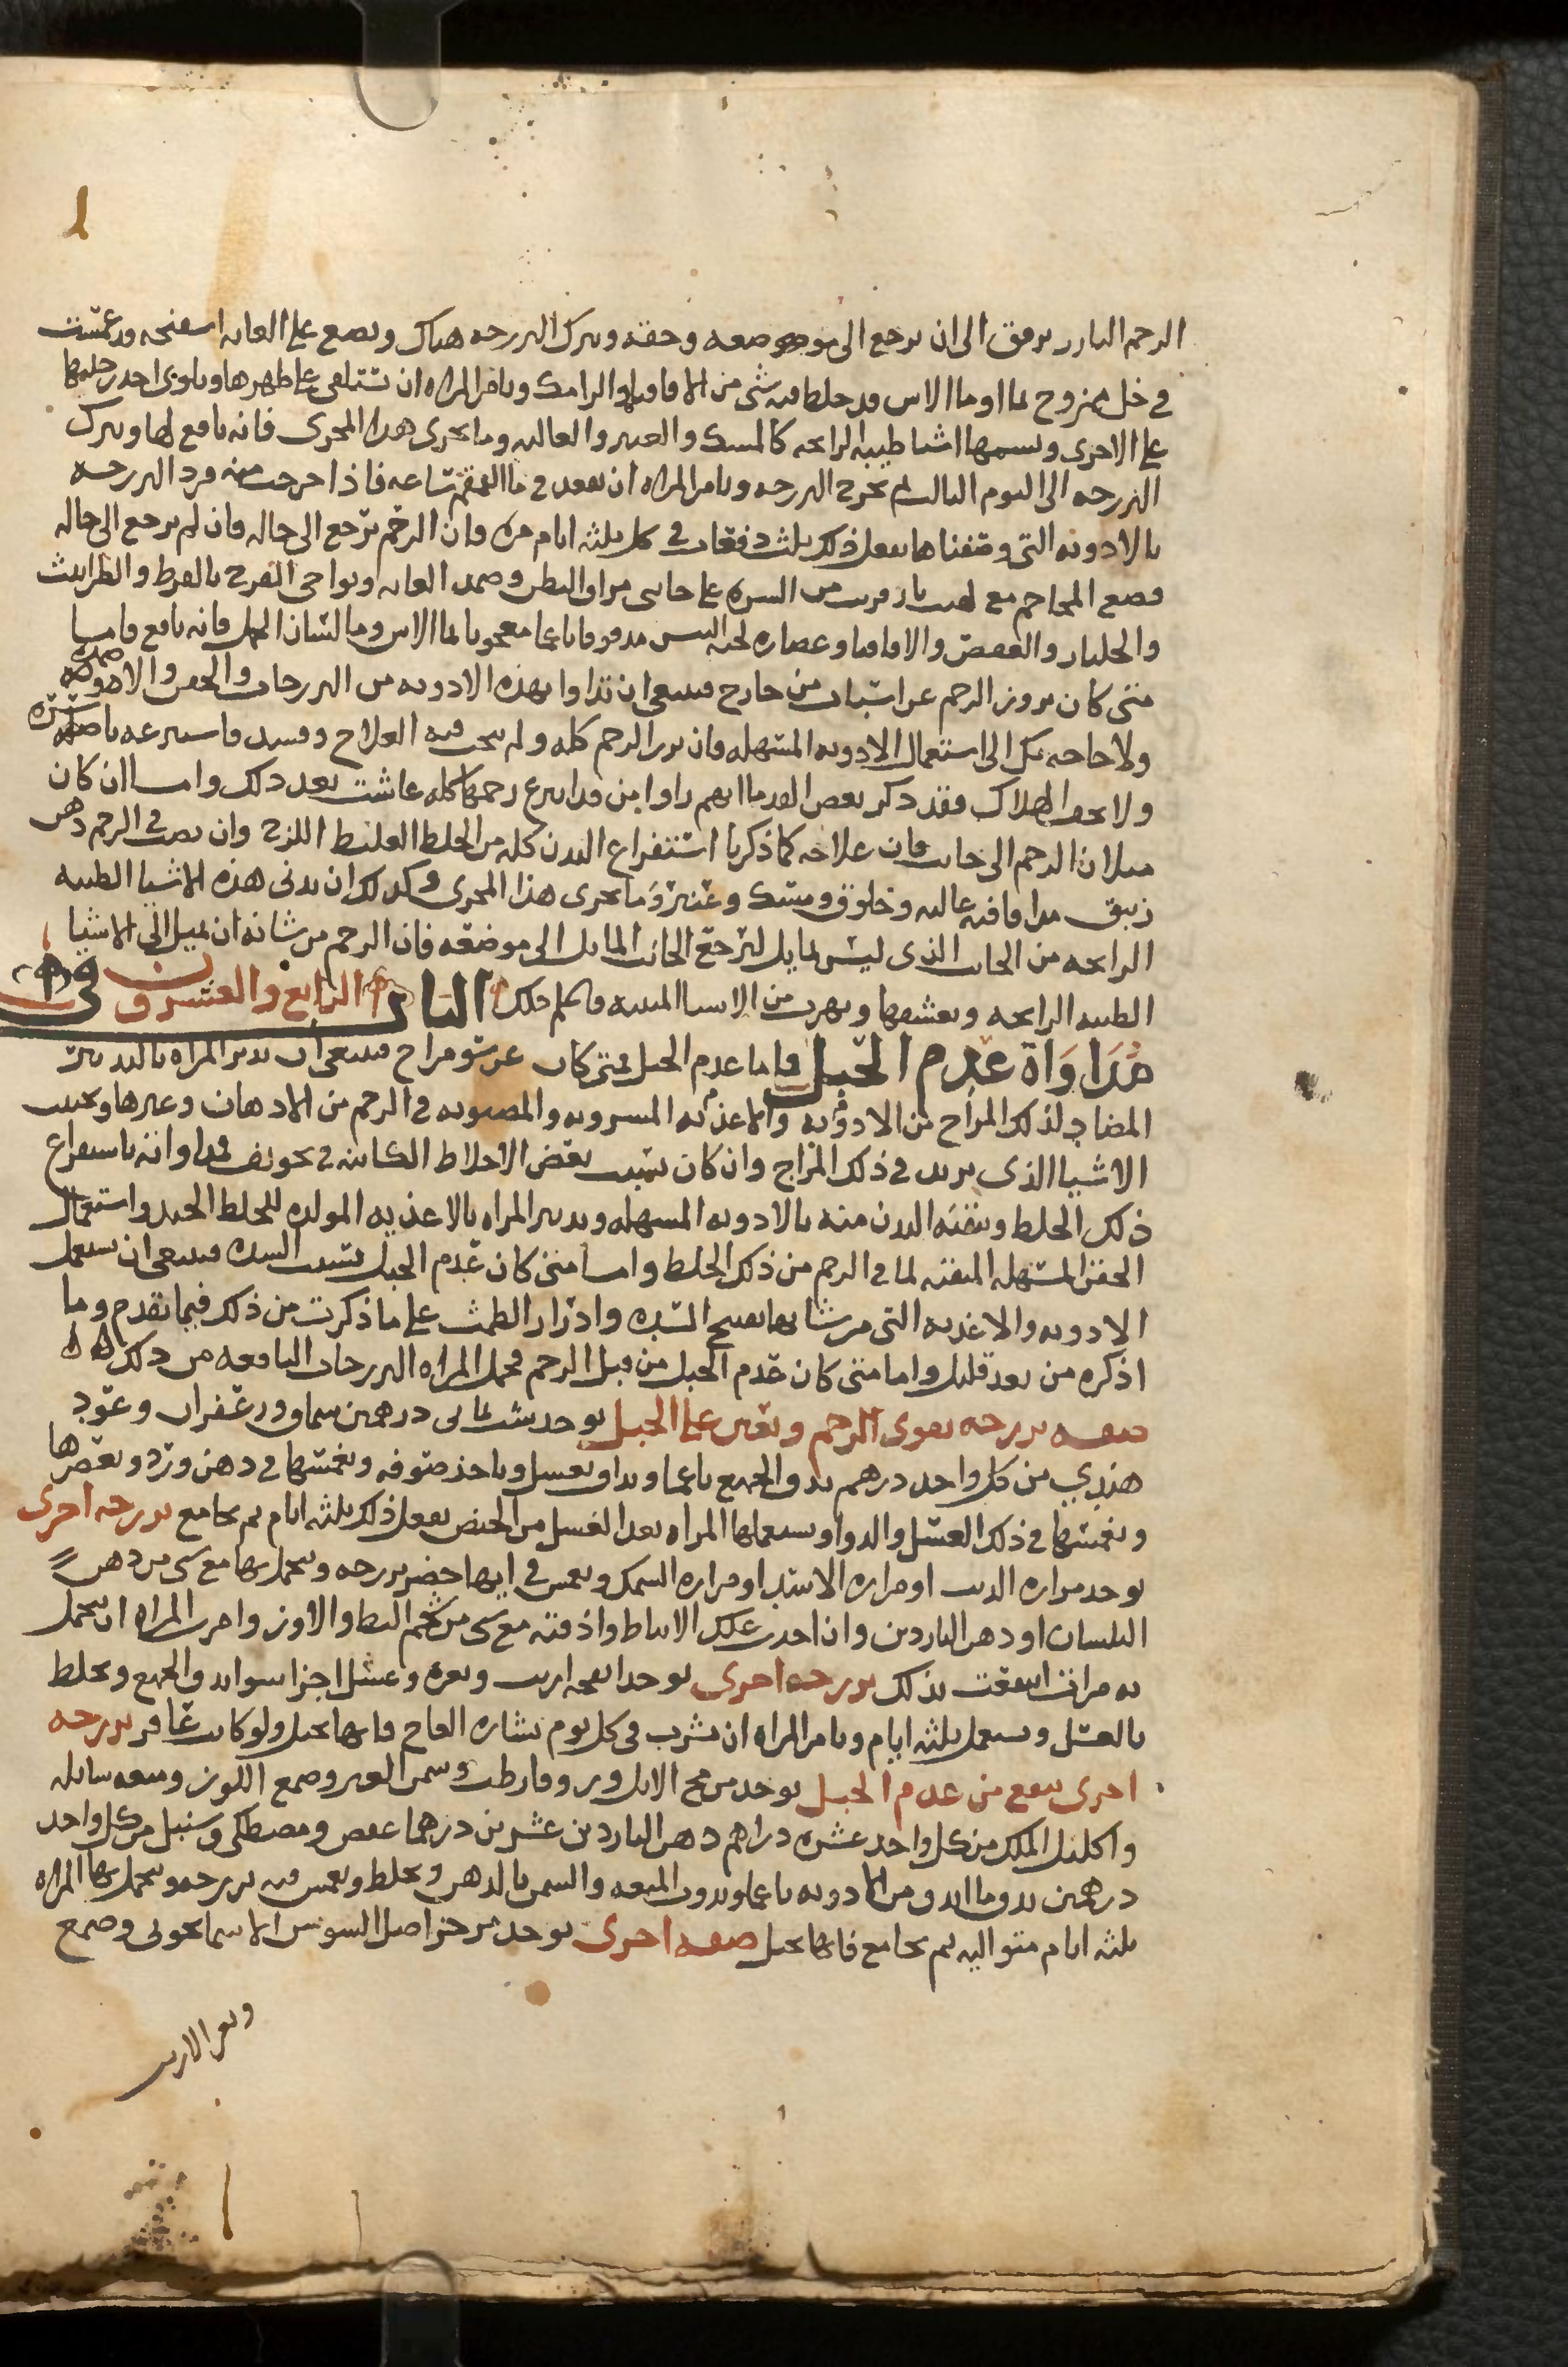 الرحم البارز برفق الى ان يرجع الى موضعه وحقه ويترك الفرزجه هناك ويضع على العانه اسفنجه قد غمست
فى خل ممزوج بما او ما الاس قد خلط فيه شى من الاقاقيا والرامك ويامر المراه ان تستلقى على ظهرها ويلوى احد رجليها
على الاخرى ويشمها اشيا طيبه الرايحه كالمسك والعنبر والغاليه وما يجرى هذا المجرى فانه نافع لها ويترك
الفرزجه الى اليوم الثالث ثم يخرج الفرزجه ويامر المراه ان تقعد فى ما القمقم ساعه فاذا خرجت منه فرد الفرزجه
بالادويه التى وصفناها يفعل ذلك ثلث دفعات فى كل ثلثه ايام مره فان الرحم ترجع الى حاله فان لم يرجع الى حاله
فضع المحاجم مع لهيب نار قريب من السره على جانبى مراق البطن وضمد العانه ونواحى الفرج بالقرظ والطراثيث
والجلنار والعفص والاقاقيا وعصاره لحيه التيس مدقوقا ناعما معجونا بما الاس وما لسان الحمل فانه نافع فاما
متى كان بروز الرحم عن اسباب من خارج فينبغى ان تداوا بهذه الادويه من الفرزجات والحقن والاضمده
ولا حاجه بك الى استعمال الادويه المسهله فان برز الرحم كله ولم ينجب فيه العلاج وفسد فاستره
ولا تخف الهلاك فقد ذكر بعض القدما انهم راوا من قد انتزع رحمها كله عاشت بعد ذلك واما ان كان
ميلان الرحم الى جانب فان علاجه كما ذكرنا استفراغ البدن كله من الخلط الغليظ اللزج وان يصب فى الرحم دهن
زنبق مدافا فيه غاليه وخلوق ومسك وعنبر وما يجرى هذا المجرى وكذلك ان يدنى هذه الاشيا الطيبه
الرايحه من الجانب الذى ليس بمايل ليرجع الجانب المايل الى موضعه فان الرحم من شانه ان يميل الى الاشيا
الطيبه الرايحه ويعشقها ويهرب من الاشيا المنتنه فاعلم ذلك الباب الرابع والعشرون فى
مداواة عدم الحبل فاما عدم الحبل فمتى كان عن سو مزاج فينبغى ان يدبر المراه بالتدبير
المضاد لذلك المزاج من الادويه والاغذيه المشروبه والمصبوبه فى الرحم من الادهان وغيرها ويجنب
الاشيا الذى يزيد فى ذلك المزاج وان كان بسبب بعض الاخلاط الكاينه فى تجويف فمداواته باستفراغ
ذلك الخلط وينقيه البدن منه بالادويه المسهله ويدبر المراه بالاغذيه المولده للخلط الجيد واستعمال
الحقن المسهله المنقيه لما فى الرحم من ذلك الخلط واما متى كان عدم الحبل بسبب السده فينبغى ان يستعمل
الادويه والاغذيه التى من شانها تفتيح السده وادرار الطمث على ما ذكرت من ذلك فيما تقدم وما
اذكره من بعد قليل واما متى كان عدم الحبل من قبل الرحم فتحمل المراه الفرزجات النافعه من ذلك
صفه فرزجه تقوى الرحم وتعين على الحبل يوخذ شب يمانى درهمين سماق وزعفران وعود
هندي من كل واحد درهم يدق الجميع ناعما ويداف بعسل وياخذ صوفه ويغمسها فى دهن ورد ويعصرها
ويغمسها فى ذلك العسل والدوا ويستعملها المراه بعد الغسل من الحيض يفعل ذلك ثلثه ايام ثم يجامع فرزجه اخرى
يوخذ مراره الديب او مراره الاسد او مراره السمك ويغمس فى ايها حضر فرزجه ويتحمل بها مع شى من دهن
البلسان او دهن الناردين وان اخذت علك الانباط واذفته مع شى من شحم البط والاوز وامرت المراه ان تتحمل
به مرات انتفعت بذلك فرزجه اخرى يوخذ انفحه ارنب وبعره وعسل اجزا سوا يدق الجميع ويخلط
بالعسل ويستعمل ثلثه ايام ويامر المراه ان تشرب فى كل يوم نشاره العاج فانها تحبل ولو كانت عاقر فرزجه
اخرى ينفع من عدم الحبل يوخذ من مخ الايل وسمن البقر وصمغ اللوز وميعه سايله
واكليل الملك من كل واحد عشره دراهم دهن الناردين عشرين درهما عفص ومصطكى وسنبل من كل واحد
درهمين يدق ما اندق من الادويه ناعما ويذوب الميعه والسمن بالدهن ويخلط ويغمس فيه فرزجه ويتحمل بها المراه
ثلثه ايام متواليه ثم يجامع فانها تحبل صفه اخرى يوخذ من اصل السوسن الاسمانجونى وصمغ
وبعر الارنب